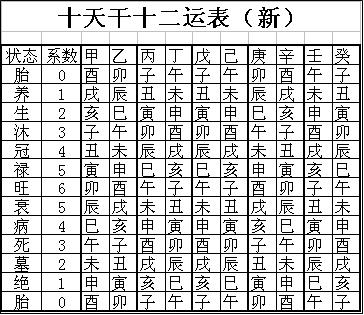 十天干十二运表（新）
状态 系数 甲 乙 丙 丁 戊 己 庚 辛 壬 癸
胎 0 酉 卯 子 午 子 午 卯 酉 午 子
养 1 戌 辰 丑 未 丑 未 辰 戌 未 丑
生 2 亥 巳 寅 申 寅 申 巳 亥 申 寅
沐 3 子 午 卯 酉 卯 酉 午 子 酉 卯
冠 4 丑 未 辰 戌 辰 戌 未 丑 戌 辰
禄 5 寅 申 巳 亥 巳 亥 申 寅 亥 巳
旺 6 卯 酉 午 子 午 子 酉 卯 子 午
衰 5 辰 戌 未 丑 未 丑 戌 辰 丑 未
病 4 巳 亥 申 寅 申 寅 亥 巳 寅 申
死 3 午 子 酉 卯 酉 卯 子 午 卯 酉
墓 2 未 丑 戌 辰 戌 辰 丑 未 辰 戌
绝 1 申 寅 亥 巳 亥 巳 寅 申 巳 亥
胎 0 酉 卯 子 午 子 午 卯 酉 午 子